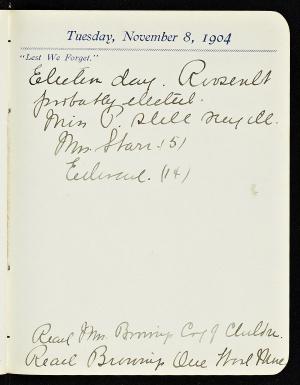 Tuesday, November 8, 1904
"Lest We Forget."
Election day. Roosevelt
probably elected.
Miss P. still very ill.
Mrs. Starr (5)
(14)
Read Mrs. Browning's Cry of Children.
Read Browning One Word More